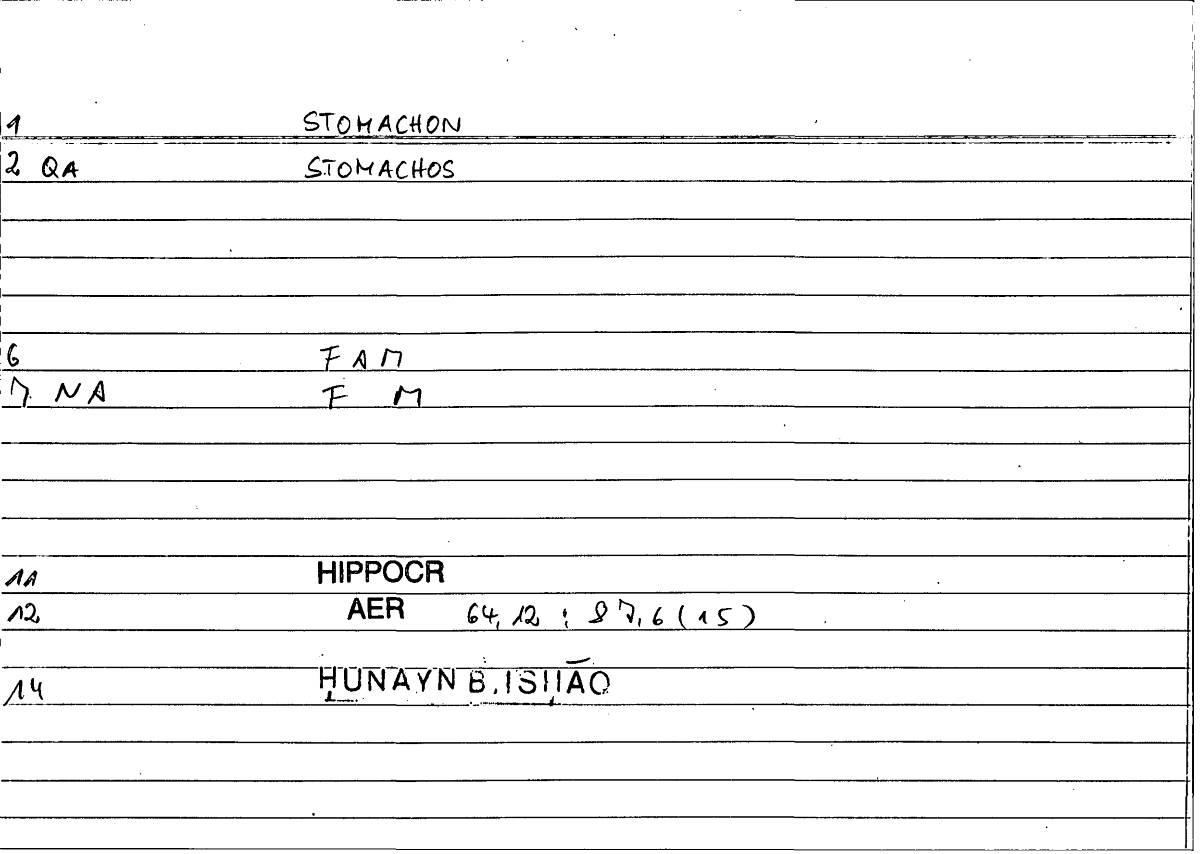 1 STOMACHON
2 QA STOMACHOS
6 FAM
7 NA F M
11 HIPPOCR
12 AER 64,12 : 87,6 (15)
14 ḤUNAYN B. ISḤĀQ